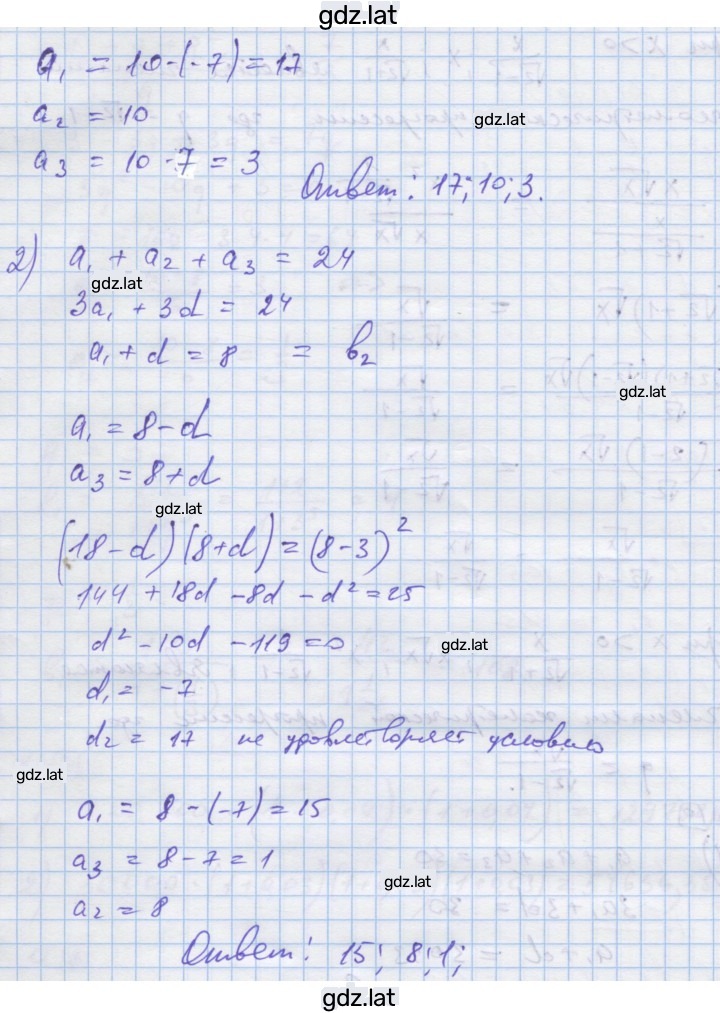 gdz.lat
a₁ = 10-(-7) = 17
a₂ = 10
gdz.lat
a₃ = 10-7 = 3
Ответ: 17; 10; 3.
2) a₁ + a₂ + a₃ = 24
gdz.lat
3a₁ + 3d = 24
a₁ + d = 8 = b₂
gdz.lat
a₁ = 8-d
a₃ = 8+d
gdz.lat
(18-d)(8+d) = (8-3)²
144 + 18d - 8d - d² = 25
d² - 10d - 119 = 0
gdz.lat
d₁ = -7
d₂ = 17 не удовлетворяет условию
gdz.lat
a₁ = 8-(-7) = 15
a₃ = 8-7 = 1
gdz.lat
a₂ = 8
Ответ: 15; 8; 1;
gdz.lat